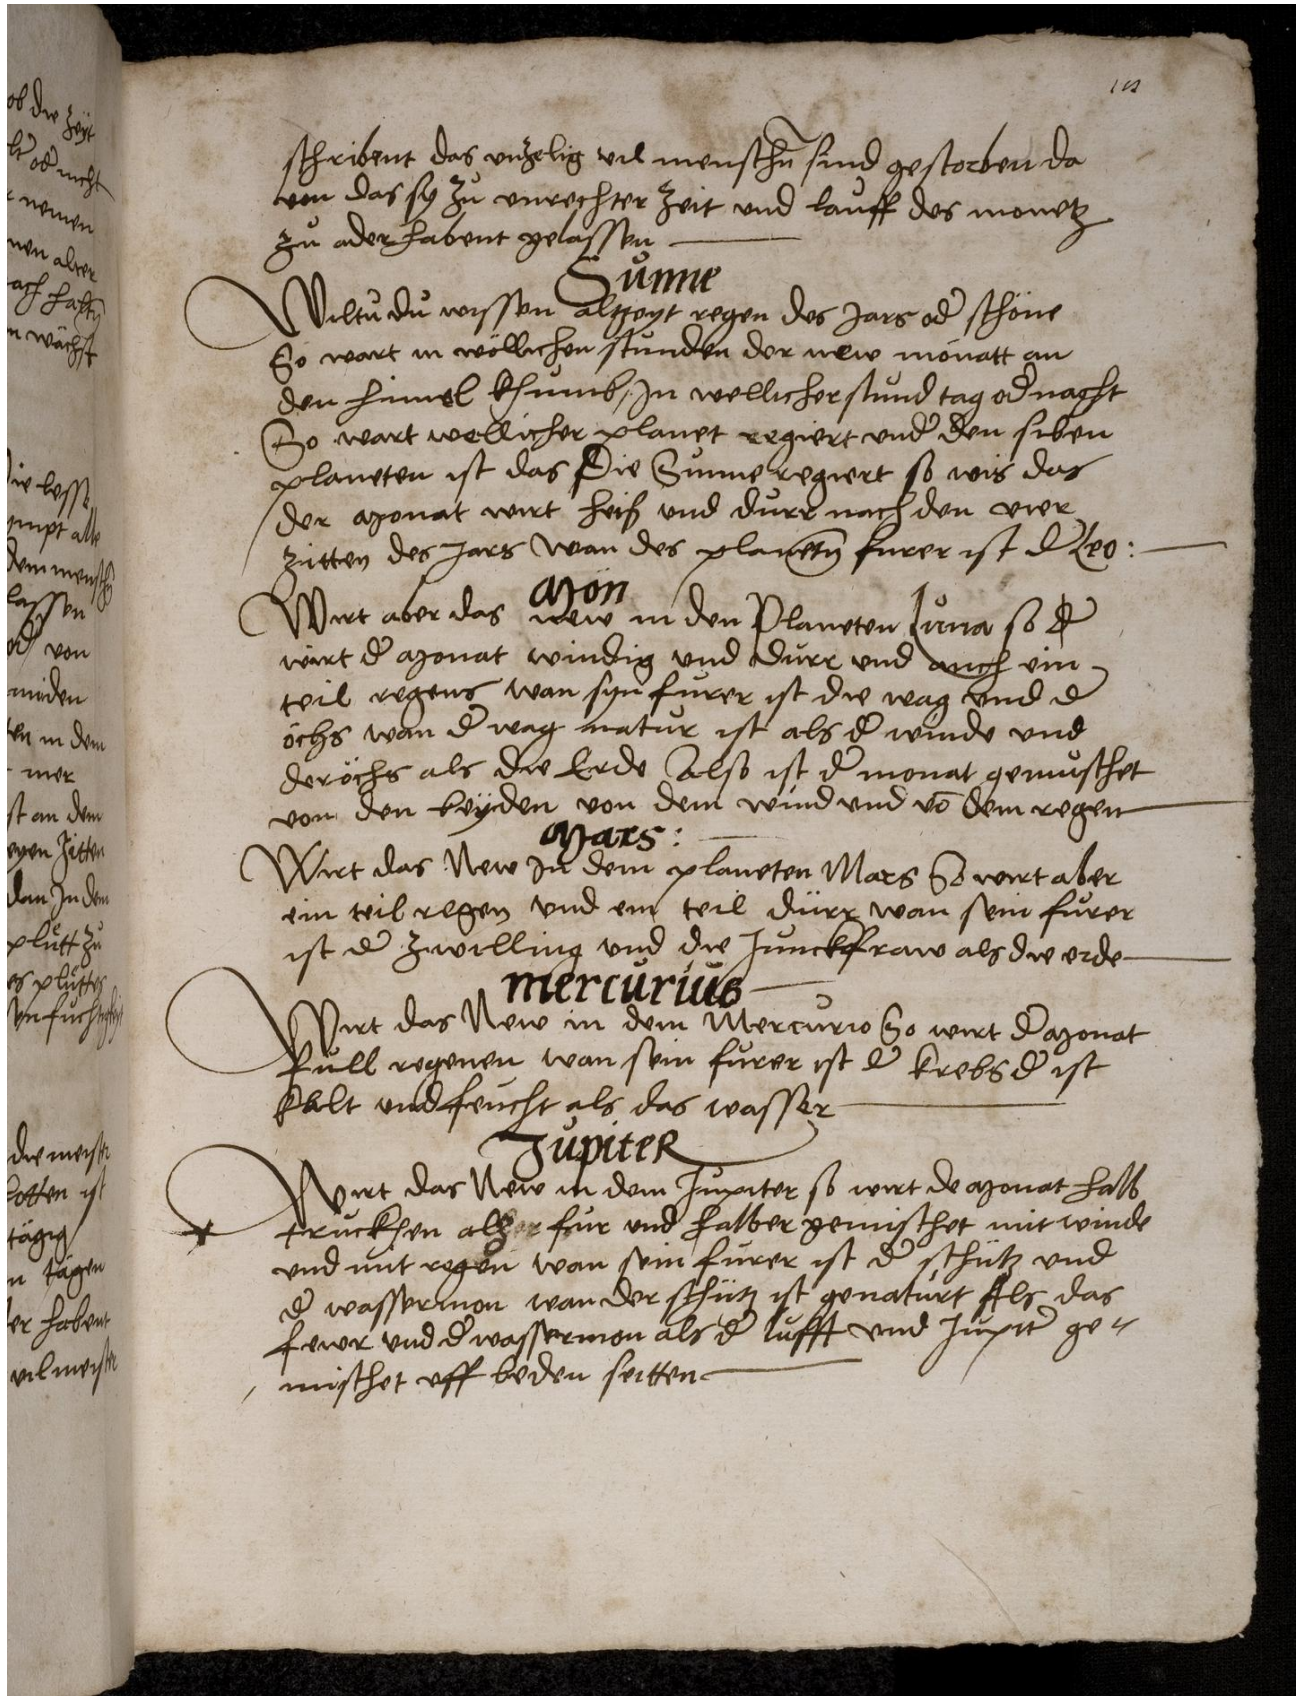 ob die Zeyt
od nicht
nemen
nen alter
n wächst
schribent das unzelig vil menschn sind gestorben da
von das sy zu unrechter Zeit und lauff des monetz
zu ader habent gelassen
Sunne
Wiltu du wissen alzeyt regen des Jars od schöne
So wart in wöllichen stunden der new monatt an
den himel khumb, In wellicher stund tag od nacht
So wart wellicher planet regiert und den siben
planeten ist das Die Sunne regiert so wis das
der Monat wirt heiß und durr nach den vier
Zitten des Jars Wan des planetn furer ist d Leo:
Mon
Wirt aber das new in den Planeten Luna so
wirt d Monat windig und durr und auch ein
teil regens wan syn furer ist die wag und d
öchs wan d wag natur ist als d winde und
der öchs als die Erde Also ist d monat gemuschet
von den beyden von dem wind und vo dem regen
Mars:
Wirt das New In dem planeten Mars So wirt aber
ein teil regen und ein teil dürr wan sein furer
ist d Zwilling und die Junckfraw als die erde
mercurius
Wirt das New in dem Mercurio So wirt d Monat
full regenen wan sein furer ist d krebs d ist
kalt und feucht als das wasser
Jupiter
Wirt das New in dem Jupiter so wirt de Monat halb
truckhen fur und halber gemischet mit winde
und mit regen wan sein furer ist d schütz und
d wassermon wan der schütz ist genaturt Als das
fewr und d wassermon als d lufft und Jupit ge=
mischet uff beden seitten